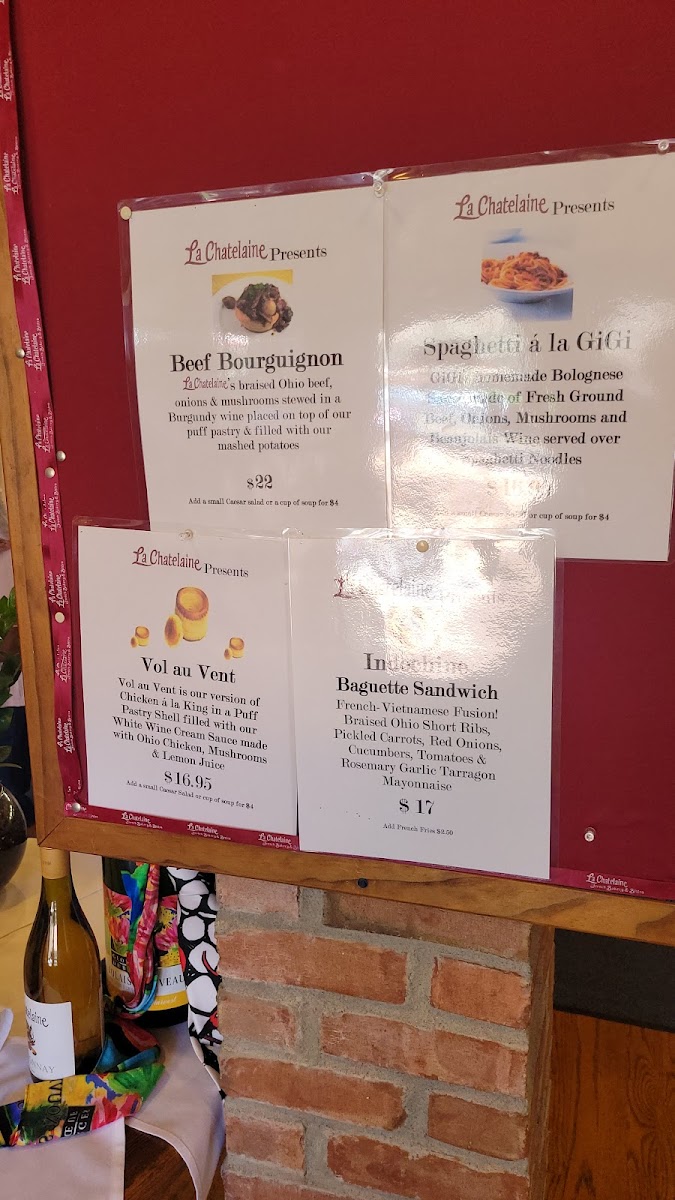 La Chatelaine Presents
Beef Bourguignon
La Chatelaine's braised Ohio beef,
onions & mushrooms stewed in a
Burgundy wine placed on top of our
puff pastry & filled with our
mashed potatoes
$22
Add a small Caesar salad or a cup of soup for $4
La Chatelaine Presents
Spaghetti á la GiGi
GiGi's homemade Bolognese
Sauce made of Fresh Ground
Beef, Onions, Mushrooms and
Beaujolais Wine served over
Spaghetti Noodles
a small Caesar Salad or cup of soup for $4
La Chatelaine Presents
Vol au Vent
Vol au Vent is our version of
Chicken á la King in a Puff
Pastry Shell filled with our
White Wine Cream Sauce made
with Ohio Chicken, Mushrooms
& Lemon Juice
$16.95
Add a small Caesar Salad or cup of soup for $4
La Chatelaine Presents
Indochine
Baguette Sandwich
French-Vietnamese Fusion!
Braised Ohio Short Ribs,
Pickled Carrots, Red Onions,
Cucumbers, Tomatoes &
Rosemary Garlic Tarragon
Mayonnaise
$ 17
Add French Fries $2.50
La Chatelaine
French Bakery & Bistro
La Chatelaine
La Chatelaine
La Chatelaine
French Bakery & Bistro